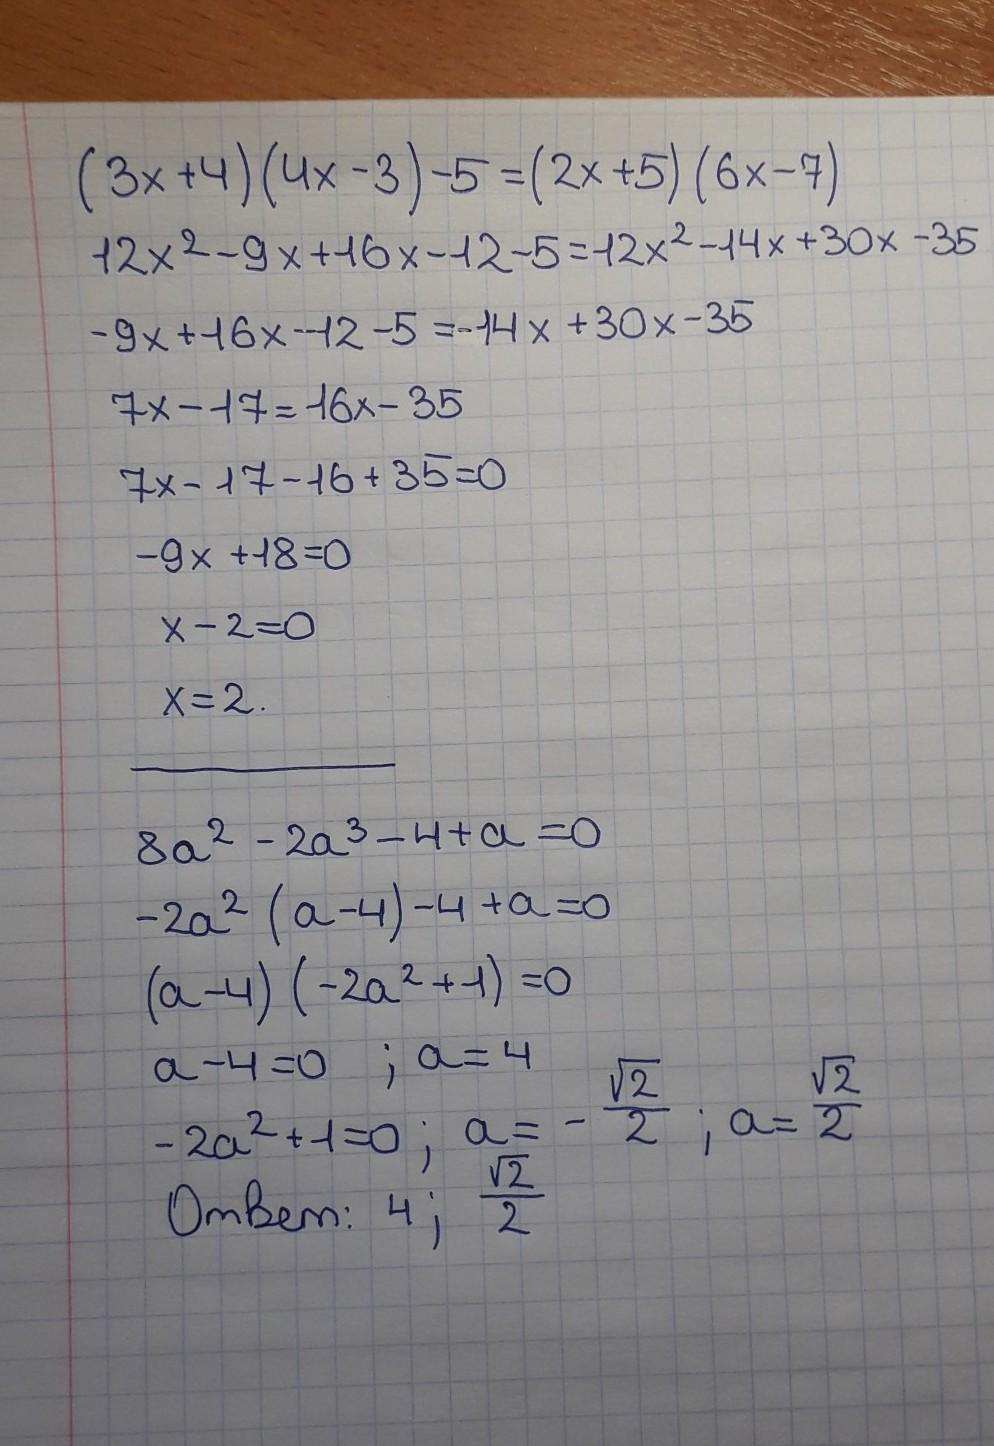 (3x+4)(4x-3)-5=(2x+5)(6x-7)
12x²-9x+16x-12-5=12x²-14x+30x-35
-9x+16x-12-5=-14x+30x-35
7x-17=16x-35
7x-17-16+35=0
-9x+18=0
x-2=0
x=2.
8a²-2a³-4+a=0
-2a²(a-4)-4+a=0
(a-4)(-2a²+1)=0
a-4=0 ; a=4
-2a²+1=0; a=-√2/2 ; a=√2/2
Ответ: 4; √2/2